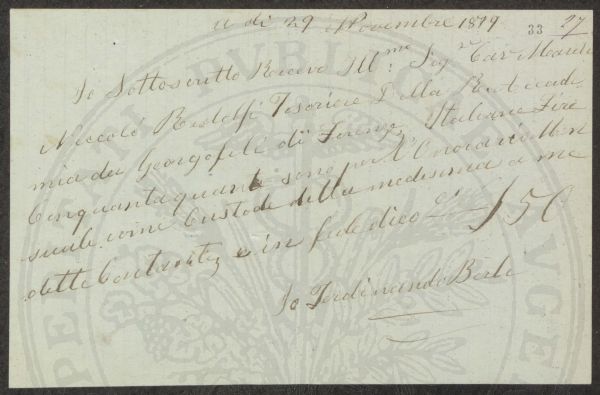 a di 29 Novembre 1879 33 27
Io Sottoscritto Ricevo Ill:mo Sigr Cav March
Niccolò Ridolfi Tesoriere Della Real Accad
mia dei Georgofili di Firenze Italiane Lire
Cinquanta quante sono per l'Onorario Men
suale come Custode della medesima a me
dette Contanti e in fede dico £ 50
Io Ferdinando Berti
PER PUBBLICO
AUGE